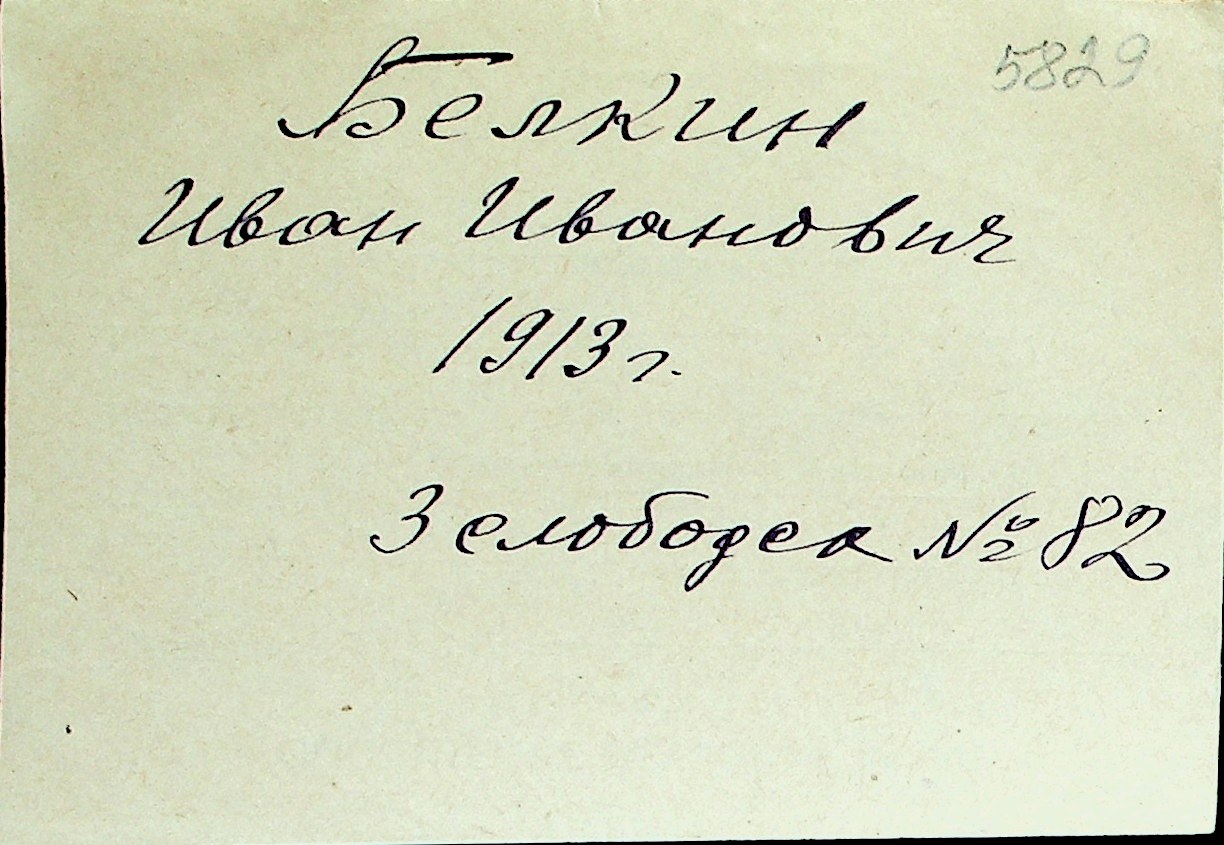 5829
Белкин
Иван Иванович
1913 г.
№ 82